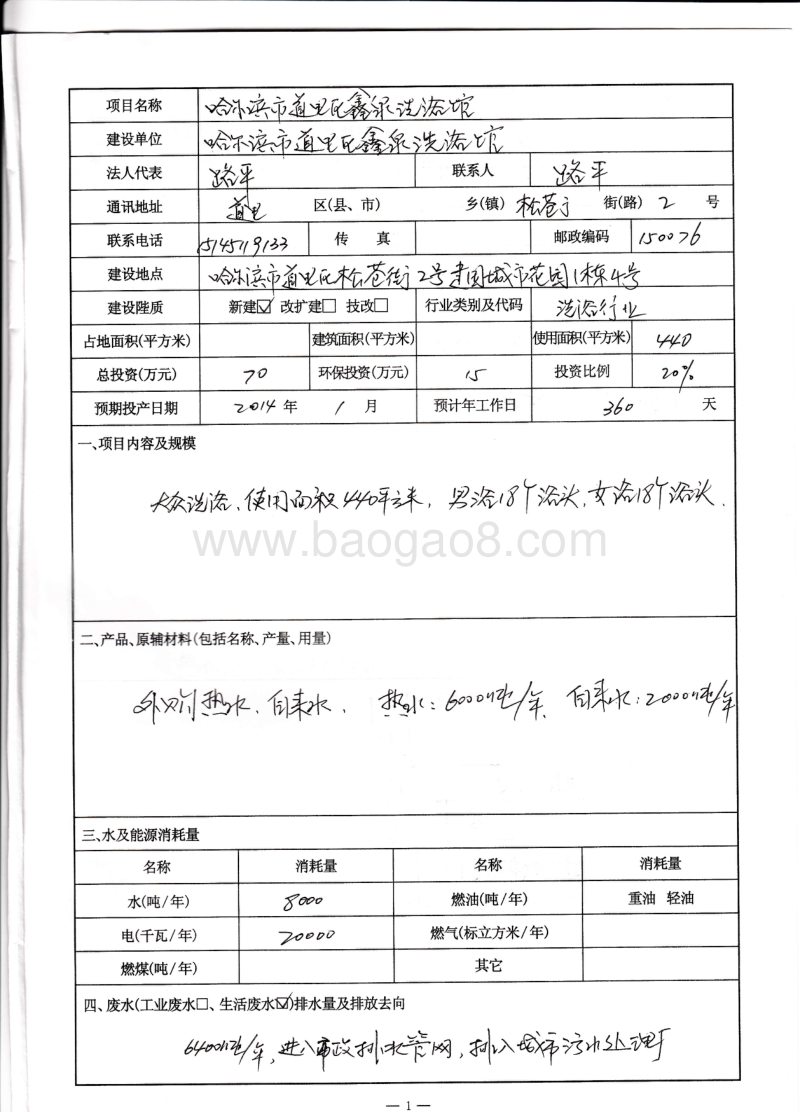 项目名称 哈尔滨市道里区鑫泉洗浴馆
建设单位 哈尔滨市道里区鑫泉洗浴馆
法人代表 路平 联系人 路平
通讯地址 道里 区(县、市) 乡(镇) 松苍 街(路) 2 号
联系电话 15145119133 传 真 邮政编码 150076
建设地点 哈尔滨市道里区松苍街2号建国城市花园1栋4号
建设陛质 新建☑ 改扩建□ 技改□ 行业类别及代码 洗浴行业
占地面积(平方米) 建筑面积(平方米) 使用面积(平方米) 440
总投资(万元) 70 环保投资(万元) 15 投资比例 20%
预期投产日期 2014 年 1 月 预计年工作日 360 天
一、项目内容及规模
大众洗浴、使用面积440平方米, 男浴18个浴头, 女浴18个浴头.
www.baogao8.com
二、产品、原辅材料(包括名称、产量、用量)
外购热水、自来水. 热水:6000吨/年. 自来水:2000吨/年
三、水及能源消耗量
名称 消耗量 名称 消耗量
水(吨/年) 8000 燃油(吨/年) 重油 轻油
电(千瓦/年) 20000 燃气(标立方米/年)
燃煤(吨/年) 其它
四、废水(工业废水□、生活废水☑)排水量及排放去向
6400吨/年, 进入市政排水管网, 排入城市污水处理厂
— 1 —